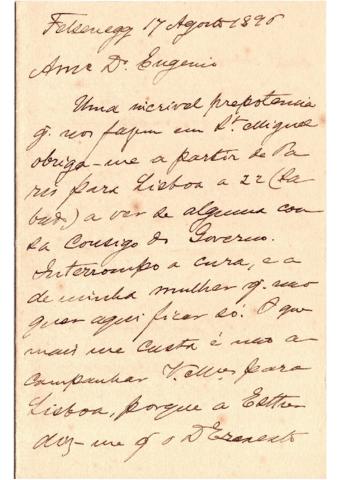 Felsenegg 17 Agosto 1896
Amo Dr. Eugenio
Uma incrivel prepotencia
q. nos fazem em S. Miguel
obriga-me a partir de Pa
ris para Lisboa a 22 (Sa
bado) a ver se alguma cou
sa consigo do Governo.
Interrompo a cura, e a
de minha mulher q. não
quer aqui ficar só. O que
mais me custa é não a
companhar V. Mces para
Lisboa, porque a Esther
diz-me q o D Ernesto